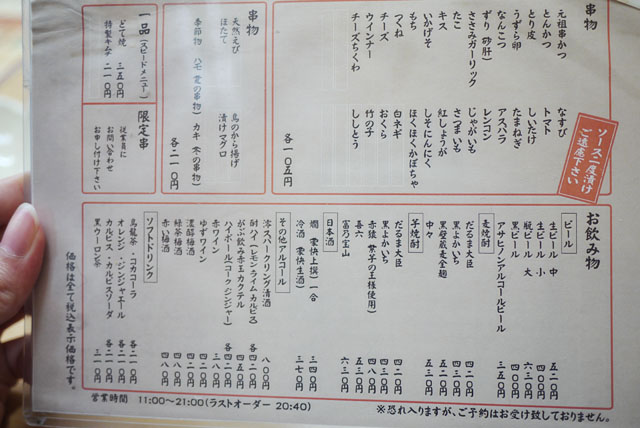 串物
元祖串かつ
とんかつ
とり皮
うずら卵
なんこつ
ずり(砂肝)
ささみガーリック
キス
たこ
いかげそ
もち
つくね
ウインナー
チーズ
チーズちくわ
なすび
トマト
しいたけ
たまねぎ
アスパラ
レンコン
じゃがいも
さつまいも
紅しょうが
しそにんにく
ほくほくかぼちゃ
白ネギ
おくら
竹の子
ししとう
各一〇五円
ソース二度漬け
ご遠慮下さい
串物
天然えび
ほたて
鳥のから揚げ
漬けマグロ
季節物 ハモ(夏の串物) カキ(冬の串物)
各二一〇円
一品(スピードメニュー)
どて焼 三五〇円
特製キムチ 二一〇円
限定串
従業員に
お問い合わせ
お申し付け下さい
お飲み物
ビール
生ビール 中 五二〇円
生ビール 小
瓶ビール 大 六三〇円
黒ビール
アサヒノンアルコールビール 三五〇円
麦焼酎
だるま大臣 四二〇円
黒よかいち 四〇〇円
黒壁蔵麦全麹 四二〇円
中々 五三〇円
芋焼酎
だるま大臣 四二〇円
黒よかいち 四〇〇円
赤猿(紫芋の王様使用) 四八〇円
喜六 五三〇円
富乃宝山 六三〇円
日本酒
燗(豪快上撰)一合 三四〇円
冷酒(豪快生酒) 三七〇円
その他アルコール
澪スパークリング清酒 八〇〇円
酎ハイ(レモン・ライム・カルピス) 各四二〇円
がぶ飲み赤玉カクテル 四五〇円
ハイボール(コーク・ジンジャー) 各四二〇円
赤ワイン 三八〇円
ゆずワイン 四二〇円
濃醇梅酒 四二〇円
緑茶梅酒 四二〇円
赤い梅酒 四八〇円
ソフトドリンク
烏龍茶・コカコーラ 各二一〇円
オレンジ・ジンジャエール 各二一〇円
カルピス・カルピスソーダ 各二一〇円
黒ウーロン茶 三一〇円
価格は全て税込表示価格です。
営業時間 11:00〜21:00(ラストオーダー 20:40)
※恐れ入りますが、ご予約はお受け致しておりません。